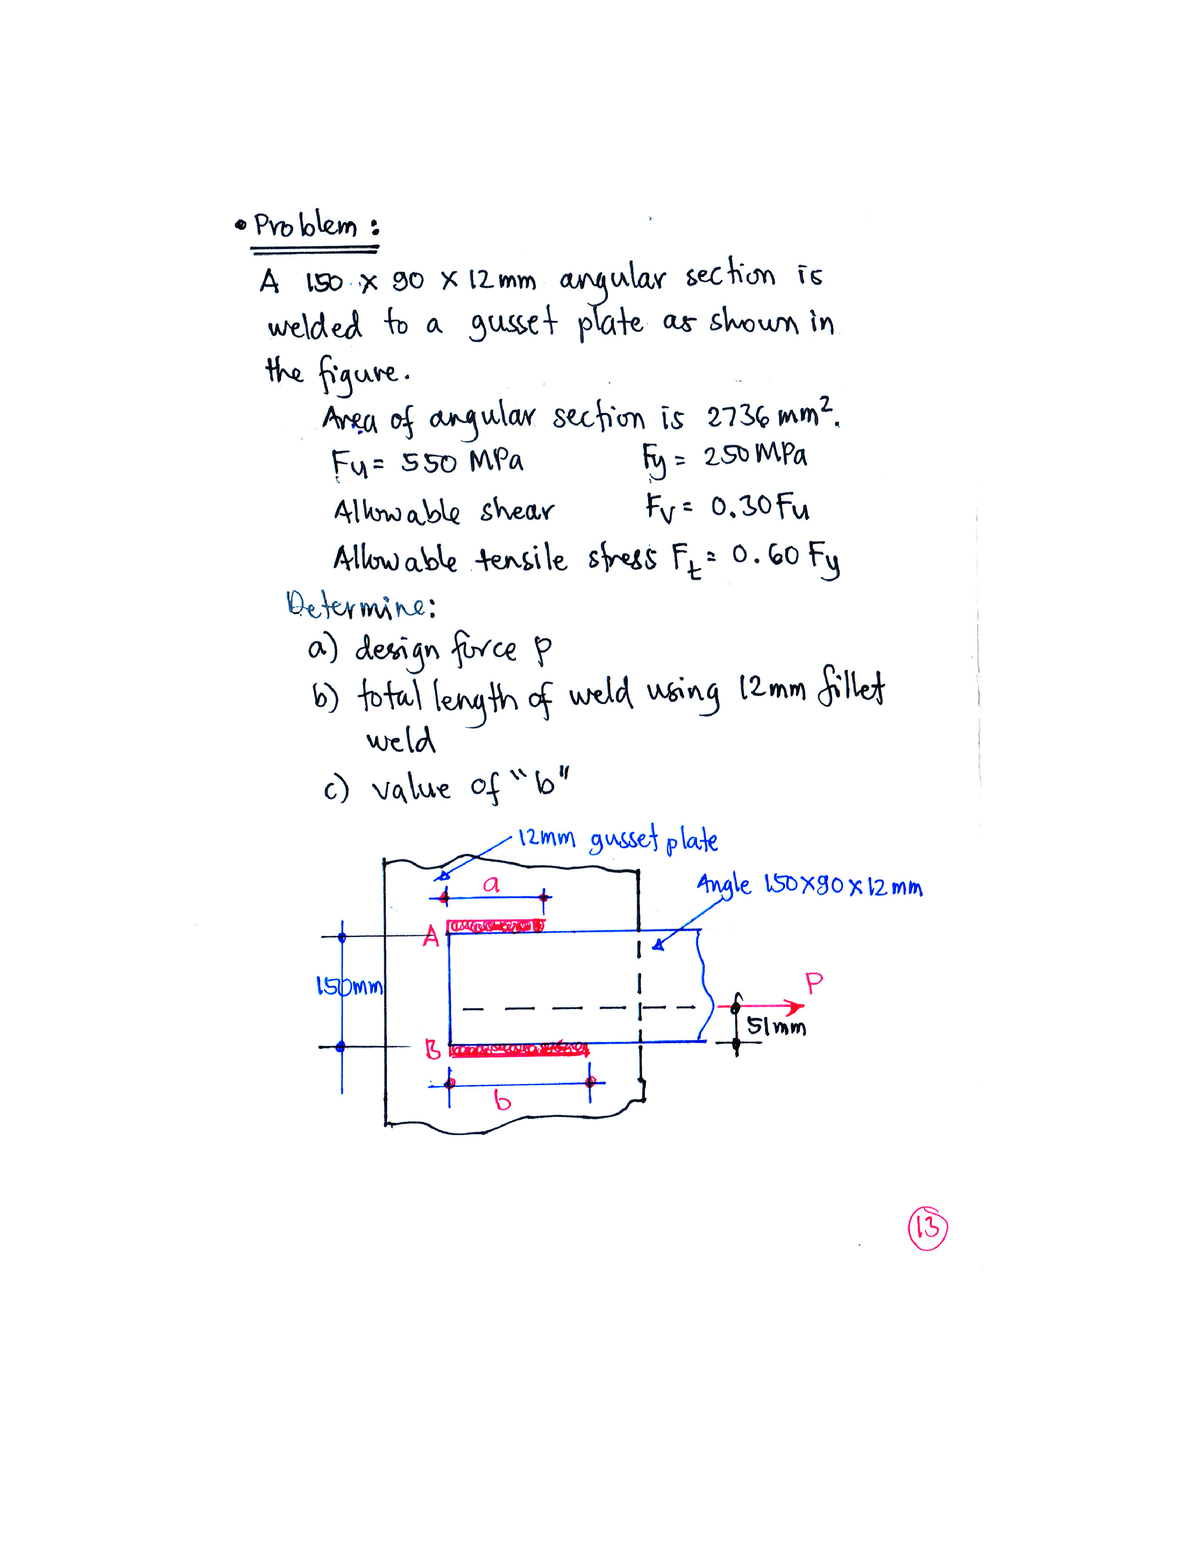 • Problem :
A 150 x 90 x 12mm angular section is
welded to a gusset plate as shown in
the figure.
Area of angular section is 2736 mm².
Fu = 550 MPa Fy = 250 MPa
Allowable shear Fv = 0.30 Fu
Allowable tensile stress Ft = 0.60 Fy
Determine:
a) design force P
b) total length of weld using 12mm fillet
weld
c) value of "b"
12mm gusset plate
a
Angle 150x90x12mm
A
150mm
P
51mm
B
b
13